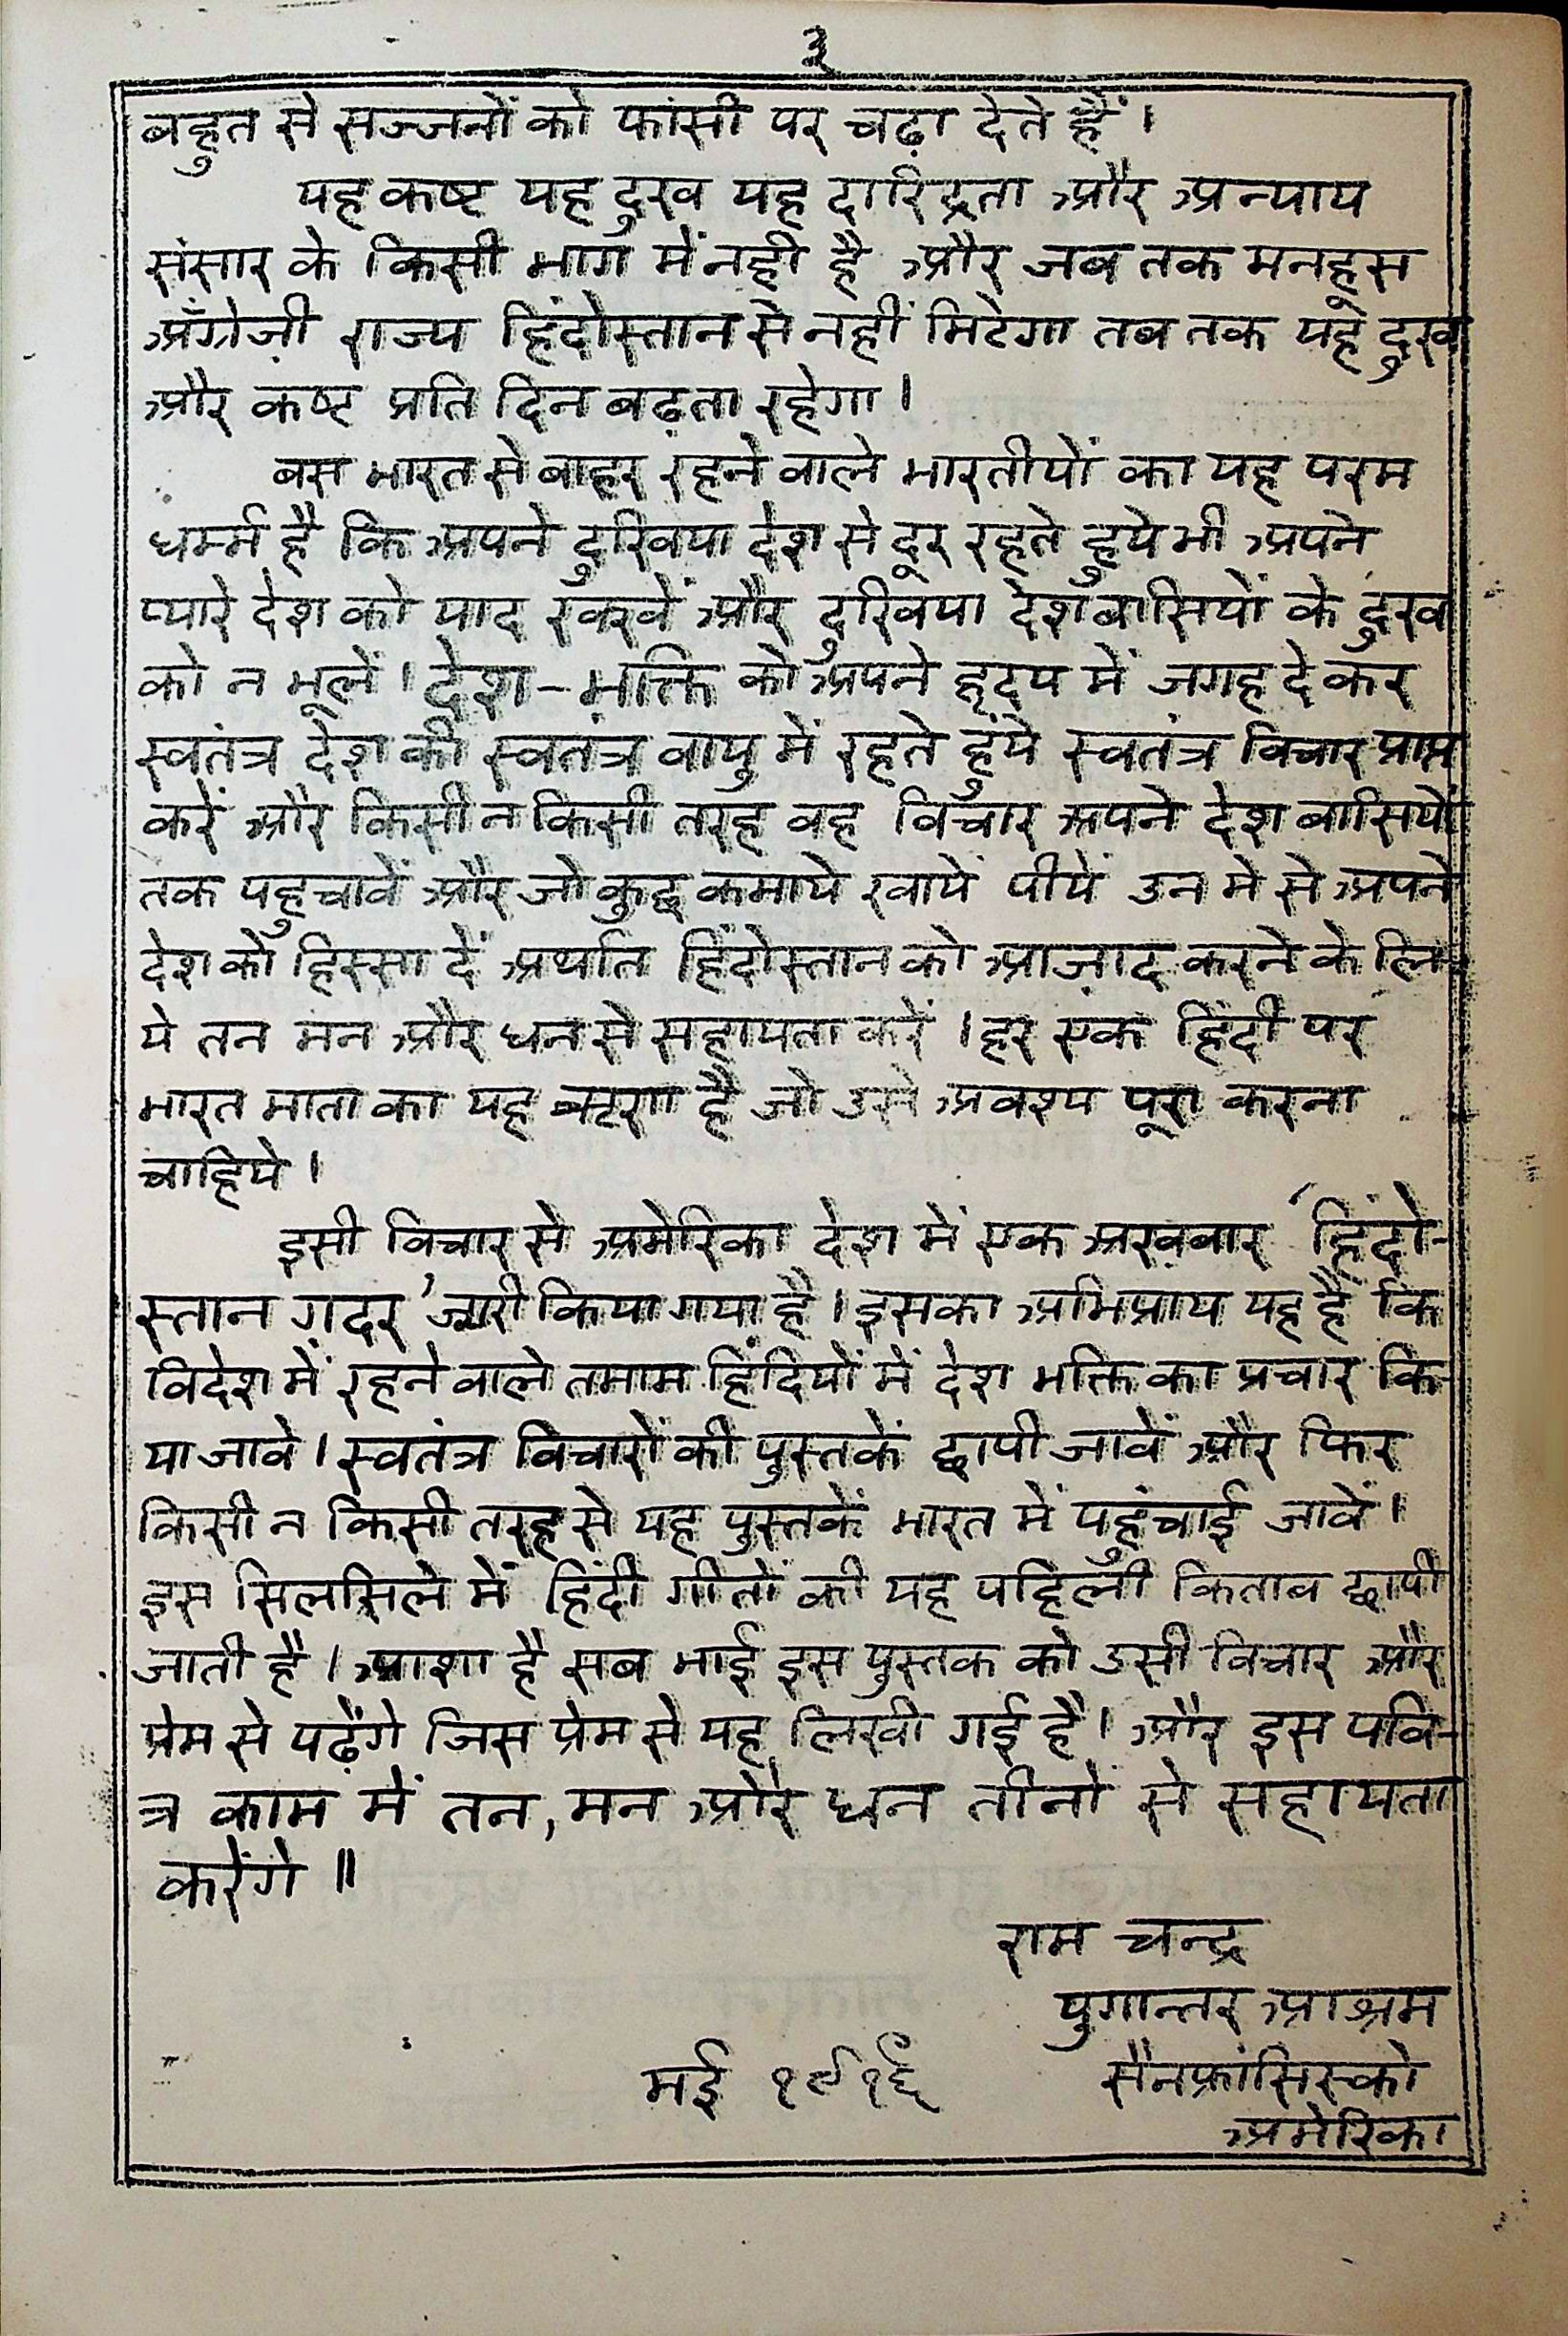 ३
बहुत से सज्जनों को फांसी पर चढ़ा देते हैं।
यह कष्ट यह दुख यह दारिद्रता और अन्याय
संसार के किसी भाग में नही है और जब तक मनहूस
अँग्रेज़ी राज्य हिंदोस्तान से नहीं मिटेगा तब तक यह दुख
और कष्ट प्रति दिन बढ़ता रहेगा।
बस भारत से बाहर रहने वाले भारतीयों का यह परम
धर्म्म है कि अपने दुखिया देश से दूर रहते हुये भी अपने
प्यारे देश को याद रक्खें और दुखिया देश बासियों के दुख
को न भूलें। देश-भक्ति को अपने हृदय में जगह दे कर
स्वतंत्र देश की स्वतंत्र वायु में रहते हुये स्वतंत्र विचार प्राप्त
करें और किसी न किसी तरह वह विचार अपने देश बासियों
तक पहुचावें और जो कुछ कमाये खायें पीयें उन मे से अपने
देश को हिस्सा दें अर्थात हिंदोस्तान को आज़ाद करने के लि-
ये तन मन और धन से सहायता करें। हर एक हिंदी पर
भारत माता का यह ऋण है जो उसे अवश्य पूरा करना
चाहिये।
इसी विचार से अमेरिका देश में एक अख़बार 'हिंदो-
स्तान ग़दर' जारी किया गया है। इसका अभिप्राय यह है कि
विदेश में रहने वाले तमाम हिंदियों में देश भक्ति का प्रचार कि-
या जावे। स्वतंत्र विचारों की पुस्तकें छापी जावें और फिर
किसी न किसी तरह से यह पुस्तकें भारत में पहुंचाई जावें।
इस सिलसिले में हिंदी गीतों की यह पहिली किताब छापी
जाती है। आशा है सब भाई इस पुस्तक को उसी विचार और
प्रेम से पढ़ेंगे जिस प्रेम से यह लिखी गई है। और इस पवि-
त्र काम में तन, मन और धन तीनों से सहायता
करेंगे॥
राम चन्द्र
युगान्तर आश्रम
मई १९१६ सैनफ्रांसिस्को
अमेरिका